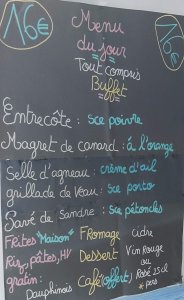 16€
Menu
du jour
Tout compris
Buffet
16€
Entrecôte : sce poivre
Magret de canard : à l'orange
Selle d'agneau : crème d'ail
grillade de veau : sce porto
Pavé de Sandre : sce pétoncles
Frites "Maison" Fromage Cidre
Riz, pâtes, HV Dessert Vin Rouge
ou
gratin : Café (offert) Rosé 25cl
Dauphinois x pers